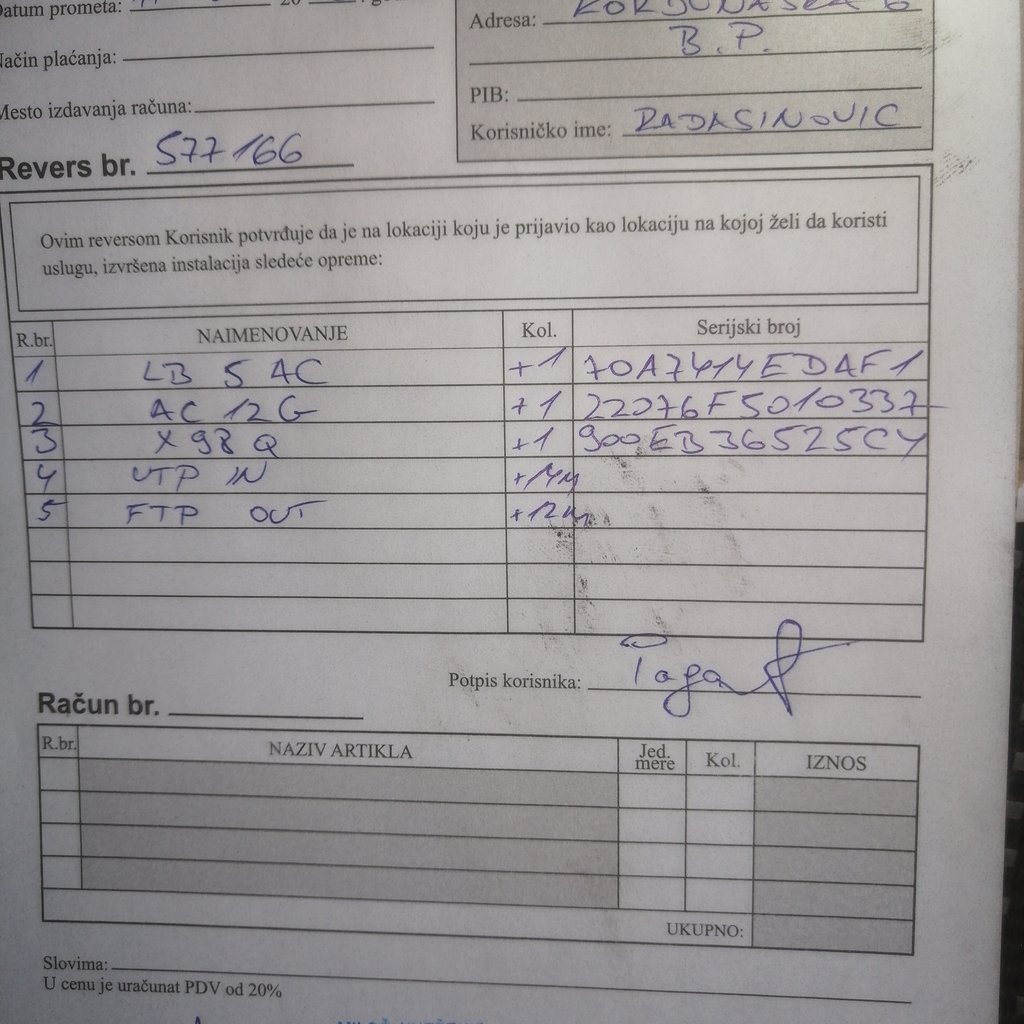 Datum prometa: 20
Adresa: KORDUNAŠKA 6
B.P.
Način plaćanja:
PIB:
Mesto izdavanja računa:
Korisničko ime: RADASINOVIC
Revers br. 577166
Ovim reversom Korisnik potvrđuje da je na lokaciji koju je prijavio kao lokaciju na kojoj želi da koristi
uslugu, izvršena instalacija sledeće opreme:
R.br. NAIMENOVANJE Kol. Serijski broj
1 LB 5 AC +1 70A7414EDAF1
2 AC 12 G +1 22076F5010337
3 X98Q +1 900EB36525CY
4 UTP IN +14m
5 FTP OUT +12m
Potpis korisnika:
Račun br.
R.br. NAZIV ARTIKLA Jed. mere Kol. IZNOS
UKUPNO:
Slovima:
U cenu je uračunat PDV od 20%